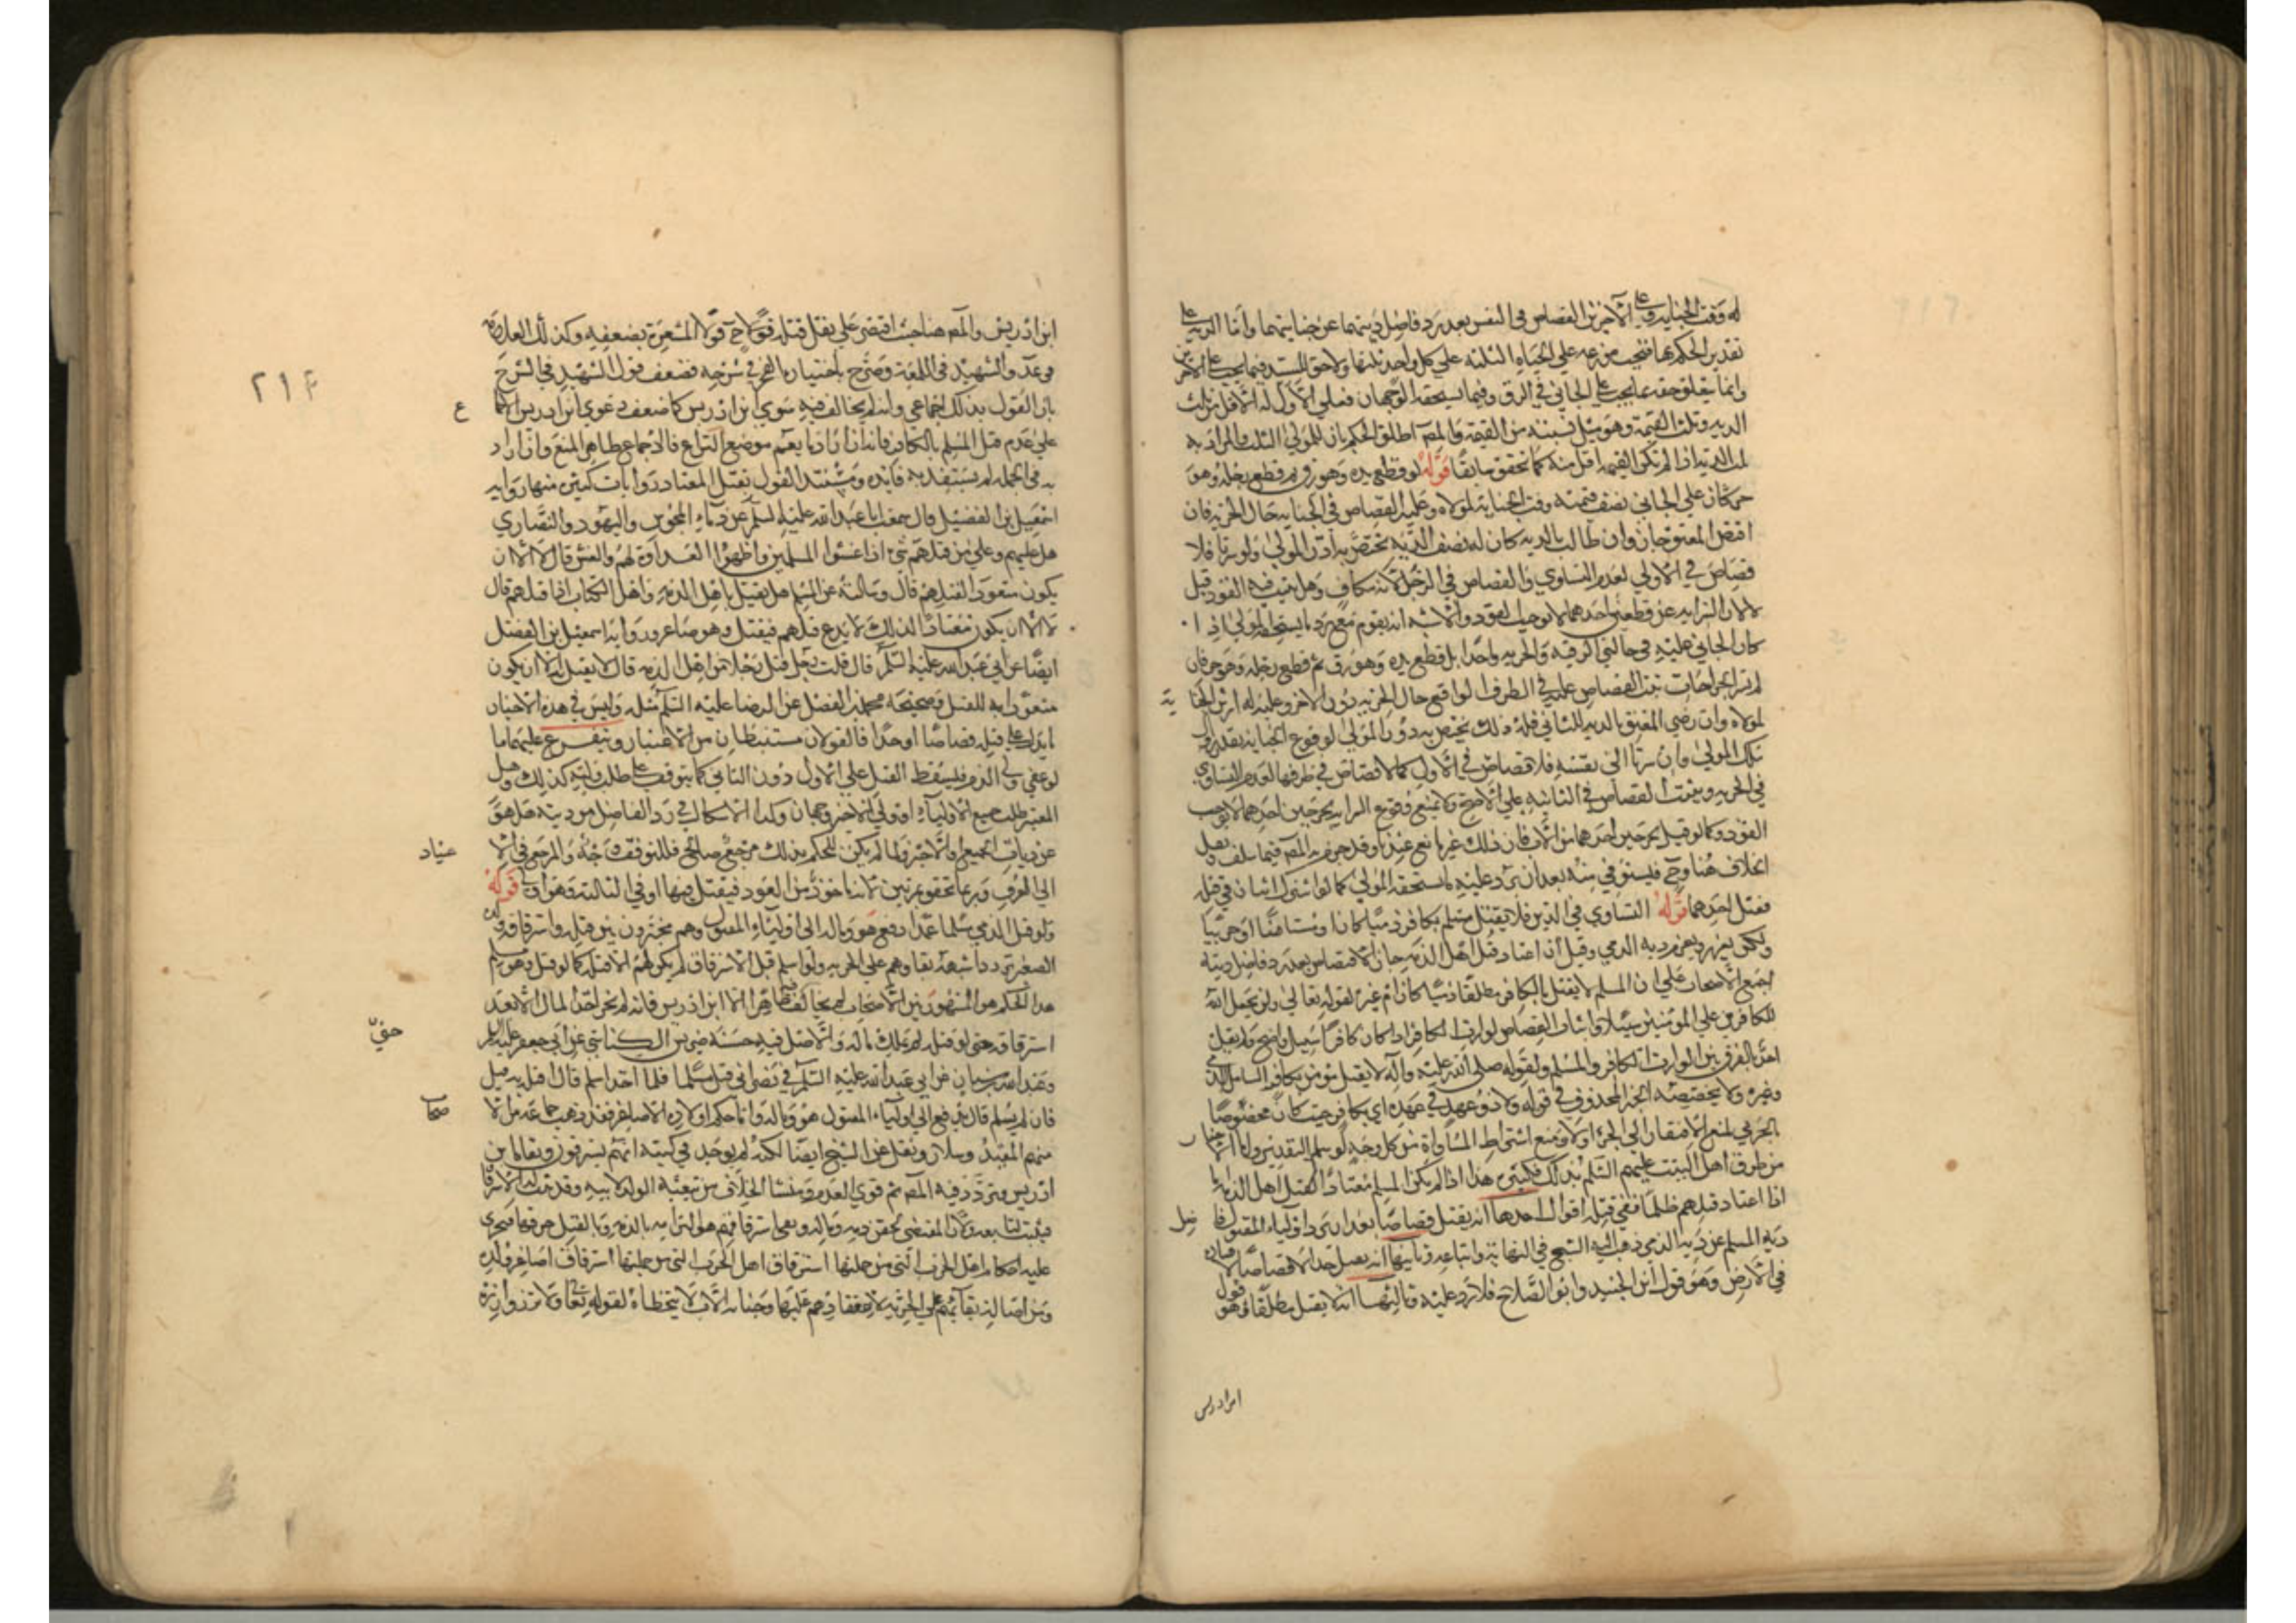 له وقت الجناية وعلى الآخرين القصاص في النفس بعد رد فاضل ديتهما عن جنايتهما واما الدية على
تقدير الحكم بها فتجب منزعه على الجناه الثلثة على كل واحد ثلثها ولا حق للسيد فيما يجب على الآخرين
وانما يتعلق حقه بما يجب على الجاني في الرق وفيما يستحقه الوجهان فعلى الاول له الاقل من ثلث
الدية وثلث القيمة وهو مثل نسبته من القيمة والمص اطلق الحكم بان للمولى الثلث والمراد به
ثلث الدية اذا لم تكن القيمة اقل منه كما تحقق سابقا قوله لو قطع يده وهو رق ثم قطع رجله وهو
حر كان على الجاني نصف قيمته وقت الجناية لمولاه وعليه القصاص في الجناية حال الحرية فان
اقتص المعتق جاز وان طالب بالدية كان له نصف الدية يختص به دون المولى ولو سرتا فلا
قصاص في الاولى لعدم التساوي والقصاص في الرجل لانه مكاف وهل يثبت فيه القود قيل
لا لان السراية عن قطعين احدهما لا يوجب القود والاشبه انه يقوم مع رد ما يستحقه المولى اذا
كان الجاني عليه في حالتي الرقية والحرية واحدا بل قطع يده وهو رق ثم قطع رجله وهو حر فان
لم تسر الجراحات ثبت القصاص عليه في الطرف الواقع حال الحرية دون الاخر وعليه له ارش الجنا ية
لمولاه وان رضي المعتق بالدية للثاني فله ذلك يختص به دون المولى لوقوع الجناية بعد زوال
ملك المولى وان سرتا الى نفسه فلا قصاص في الاول كما لا قصاص في طرفها لعدم التساوي
في الحرية ويثبت القصاص في الثانية على الاصح ولا يمنع وقوع السراية بجرحين احدهما لا يوجب
القود وكما لو قيل بجرحين احدهما من الاب فان ذلك غير مانع عندنا وقد جزم به المص فيما سلف ونقل
الخلاف هنا وح فيستوفي منه بعد ان يرد عليه ما يستحقه المولى كما لو اشترك اثنان في قتله
فقتل احدهما قوله التساوي في الدين فلا يقتل مسلم بكافر ذميا كان او مستامنا او حربيا
ولكن يعزر ويغرم دية الذمي وقيل ان اعتاد قتل اهل الذمة جاز الاقتصاص بعد رد فاضل ديته
اجمع الاصحاب على ان المسلم لا يقتل بالكافر مطلقا ذميا كان ام غيره لقوله تعالى ولن يجعل الله
للكافرين على المؤمنين سبيلا واثبات القصاص لوارث الكافر اذا كان كافرا سبيل واضح ولم يقل
احد بالفرق بين الوارث الكافر والمسلم ولقوله صلى الله عليه واله لا يقتل مؤمن بكافر الشامل للذمي
وغيره ولا يخصصه الخبر المحذوف في قوله ولا ذو عهد في عهده اي بكافر حيث كان مخصوصا
بالحربي لمنع الافتقار الى الجزء اولا ومنع اشتراط المساواة من كل وجه لو سلم التقدير واما الاخبار
من طرق اهل البيت عليهم السلم بذلك فكثيرة هذا اذا لم يكن المسلم معتادا لقتل اهل الذمة اما
اذا اعتاد قتلهم ظلما ففي قتله اقوال احدها انه يقتل قصاصا بعد ان يرد اولياء المقتول فاضل
دية المسلم عن دية الذمي ذهب اليه الشيخ في النهاية واتباعه وثانيها انه يقتل حدا لا قصاصا لافساده
في الارض وهو قول ابن الجنيد وابو الصلاح فلا رد عليه ثالثها انه لا يقتل مطلقا وهو قول
ابن ادريس
ابن ادريس والمص هنا حيث اقتصر على نقل قتله قولا ح قولا المشعرة بضعفه وكذلك العلامة
في عد والشهيد في اللمعة وصرح باختياره الفخر في شرحه فضعف قول الشهيد في الشرح
بان القول بذلك اجماعي وانه لم يخالف فيه سوى ابن ادريس كما ضعف دعوى ابن ادريس الاجما ع
على عدم قتل المسلم بالكافر فانه ان اراد ما يعم موضع النزاع فالاجماع ظاهر المنع وان اراد
به في الجملة لم يستفد به فايدة ومستند القول بقتل المعتاد روايات كثيرة منها رواية
اسمعيل بن الفضيل قال سمعت ابا عبد الله عليه السلم عن دماء المجوس واليهود والنصارى
هل عليهم وعلى من قتلهم شيء اذا غشوا المسلمين واظهروا العداوة لهم والغش قال لا الا ان
يكون متعودا لقتلهم قال وسالته عن المسلم هل يقتل باهل الذمة واهل الكتاب اذا قتلهم قال
لا الا ان يكون معتادا لذلك لا يدع قتلهم فيقتل وهو صاغر ورواية اسمعيل بن الفضل
ايضا عن ابي عبد الله عليه السلم قال قلت رجل قتل رجلا من اهل الذمة قال لا يقتل به الا ان يكون
متعودا به للقتل وصحيحة محمد بن الفضل عن الرضا عليه السلم مثله وليس في هذه الاخبار
ما يدل على قتله قصاصا او حدا فالقولان مستنبطان من الاعتبار ويتفرع عليهما ما
لو عفى ولي الدم فيسقط القتل على الاول دون الثاني كما يتوقف على طلب وليه كذلك وهل
المعتبر طلب جميع الاولياء او ولي الاخير وجهان وكذا الاشكال في رد الفاضل من ديته هل هو
عن ديات الجميع او الاخير ولما لم يكن للحكم بذلك مرجع صالح فللتوقف وجه والمرجع في الا عتياد
الى العرف وربما تحقق بمرتين لانه ماخوذ من العود فيقتل فيها او في الثالثة وهو اولى قوله
ولو قتل الذمي مسلما عمدا دفع هو وماله الى اولياء المقتول وهم مخيرون بين قتله واسترقاقه وفي
الصغير تردد اشبهه بقاوهم على الحرية ولو اسلم قبل الاسترقاق لم يكن لهم الا قتله كما لو قتل وهو مسلم
هذا الحكم هو المشهور بين الاصحاب لم يخالف ظاهرا الا ابن ادريس فانه لم يجز اخذ المال الا بعد
استرقاقه حتى لو قتله لم يملك ماله والاصل فيه حسنة ضريس الكناسي عن ابي جعفر عليه السلم
وعبد الله بن سنان عن ابي عبد الله عليه السلم في نصراني قتل مسلما فلما اخذ اسلم قال اقتله به قيل
فان لم يسلم قال يدفع الى اولياء المقتول هو وماله واما حكم اولاده الاصاغر فقد ذهب جماعة من الا صحاب
منهم المفيد وسلار ونقل عن الشيخ ايضا لكنه لم يوجد في كتبه انهم يسترقون ونفاه ابن
ادريس وتردد فيه المص ثم قوى العدم ومنشا الخلاف من تبعية الولد لابيه وقد ثبت له الاسترقاق
فيثبت لتابعه ولان المقتضي لحقن دمه وماله ونفي استرقاقهم هو التزامه بالذمة وبالقتل خرقها فيجري
عليه احكام اهل الحرب التي من جملتها استرقاق اصاغر ولده
ومن اصالة بقائهم على الحرية لانعقادهم عليها وجناية الاب لا تتخطاه لقوله تعالى ولا تزر وازرة
٢١٤